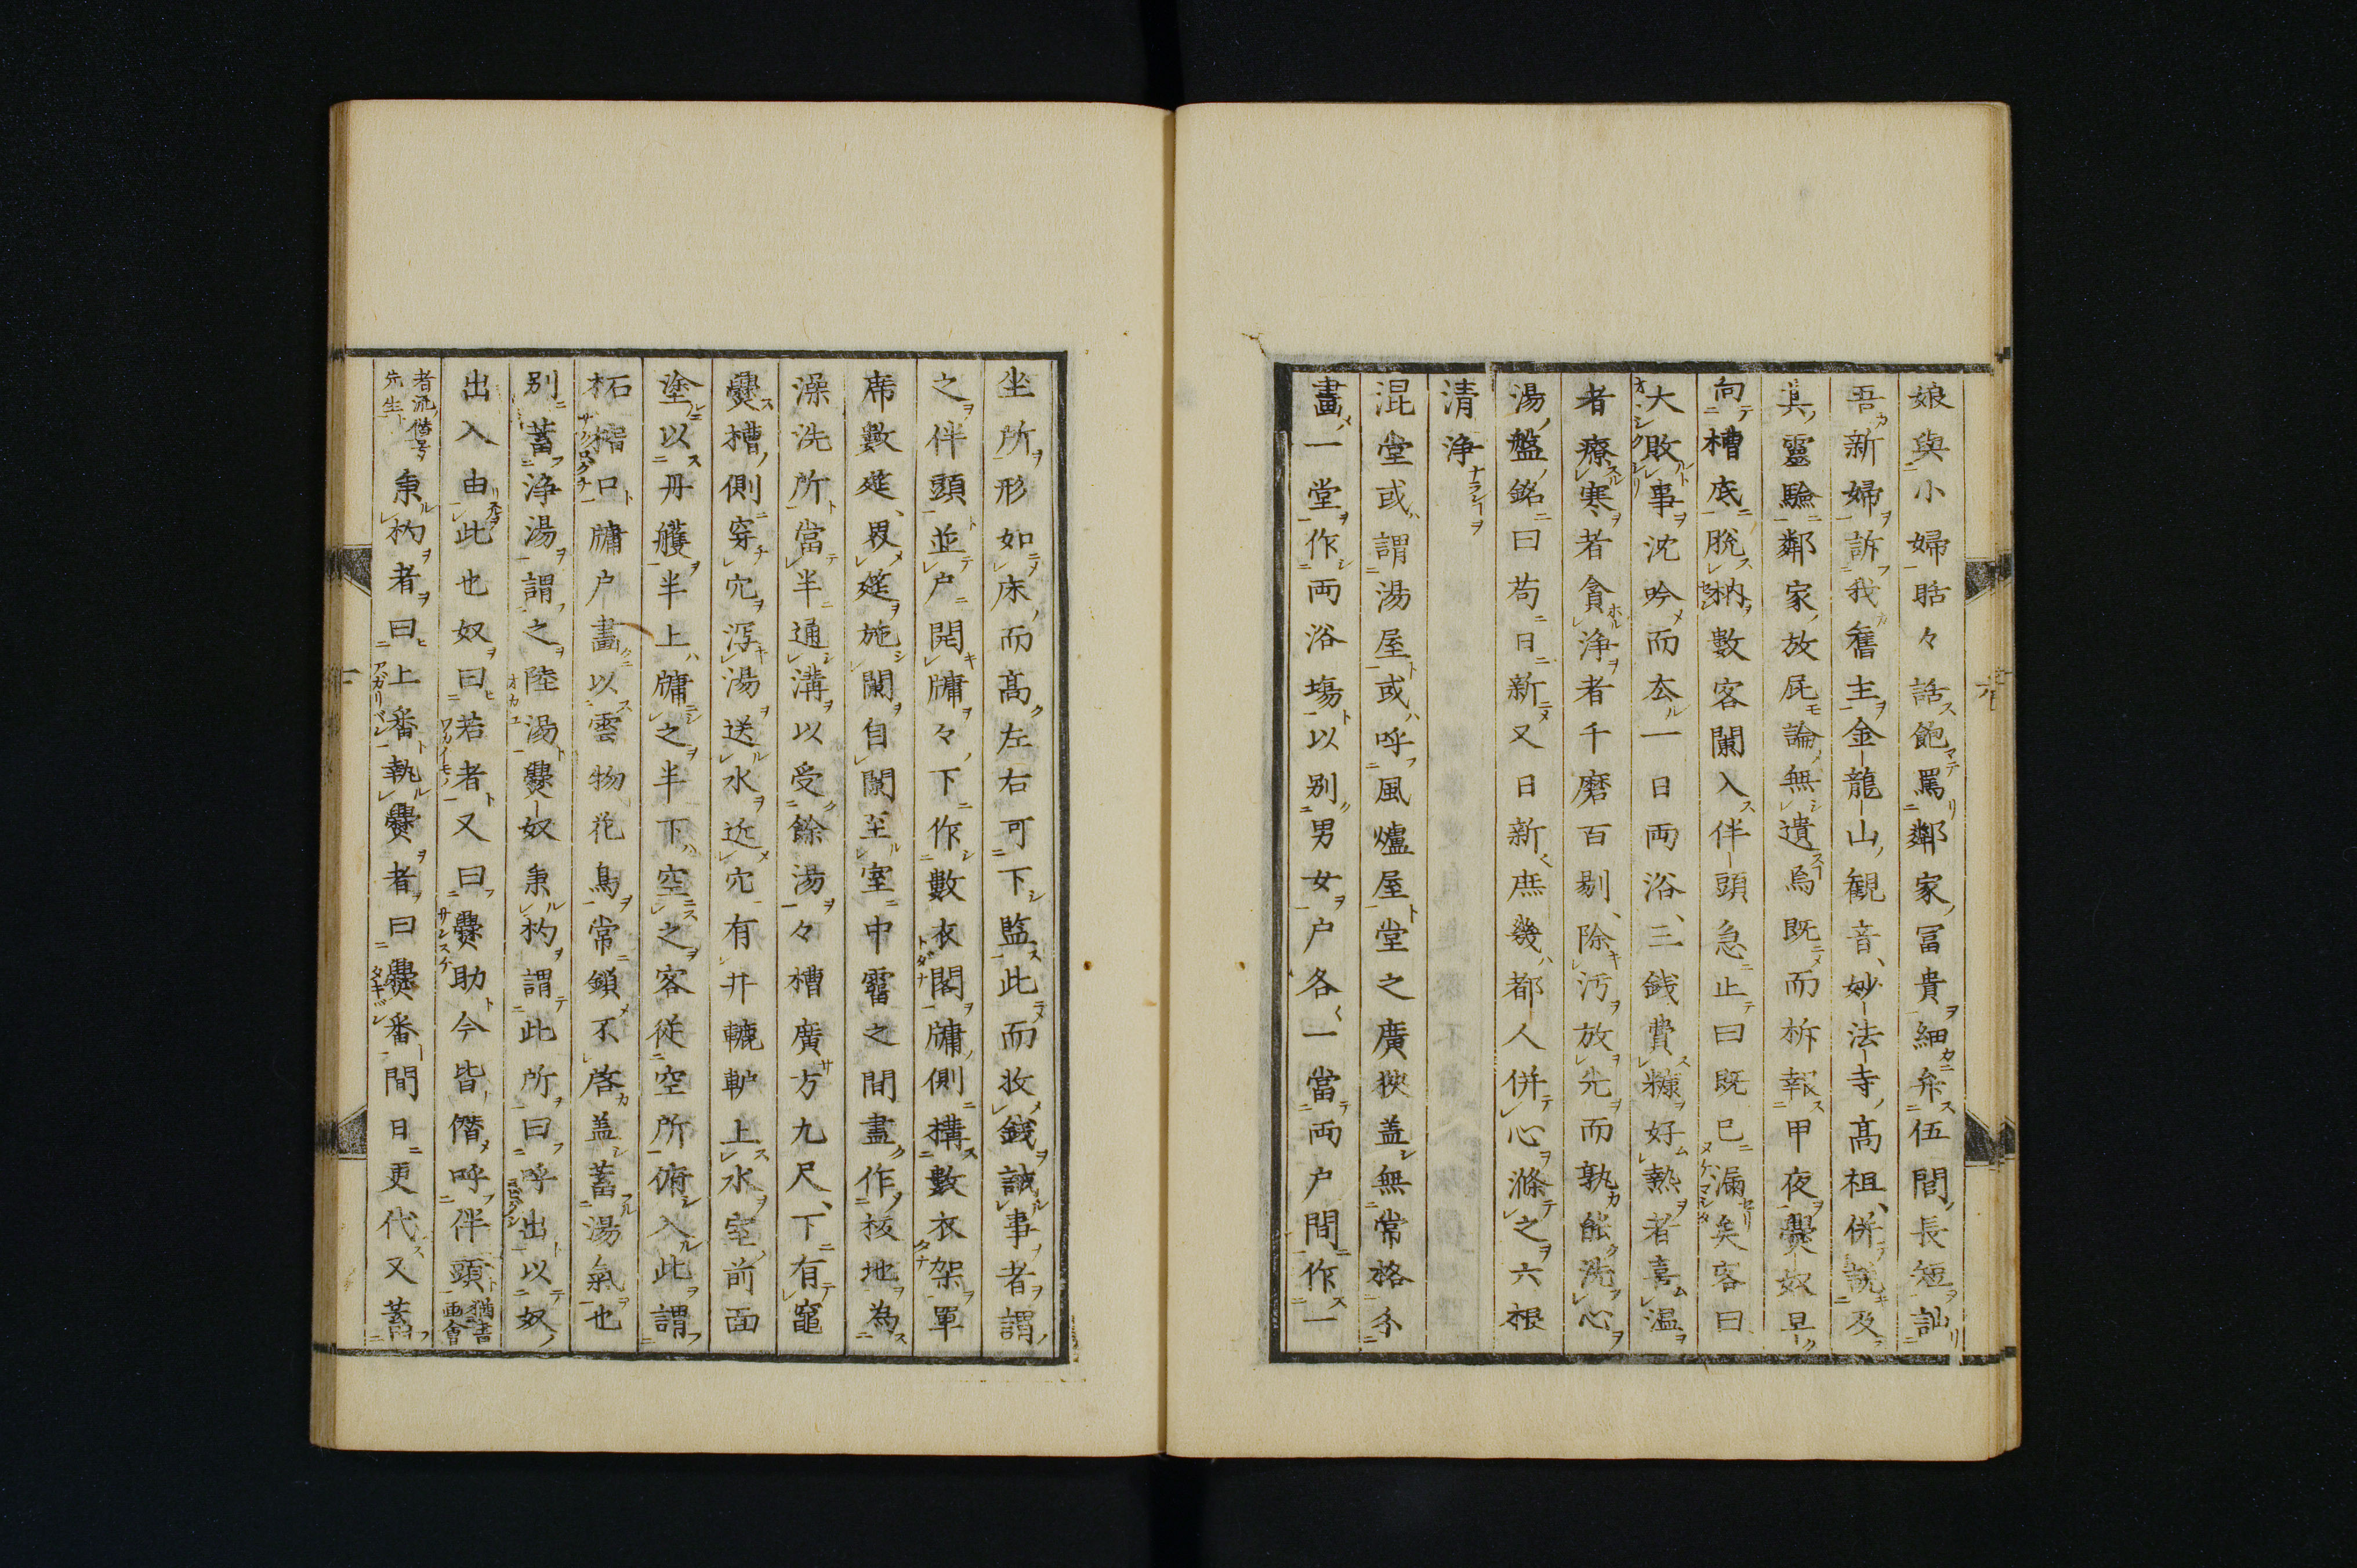 娘與小婦聒々話飽罵鄰家冨貴細弁伍閭長短訕
吾新婦訴我舊主金龍山觀音妙法寺高祖併說及
眞靈驗鄰家放屁論無遺烏既而柝報甲夜㸑奴旦
向槽底脫衲數客闌入伴頭急止曰既已漏矣客曰
大敗事沈吟而去一日両浴三銭費糠好熱者喜温
者療寒者貪浄者千磨百剔除汚放先而孰能洗心
湯盤銘曰苟日新又日新庶幾都人併心滌之六根
清浄
混堂或謂湯屋或呼風爐屋堂之廣狹盖無常格分
畫一堂作両浴場以别男女户各一當両户間作一
坐所形如床而髙左右可下監此而收銭誡事者謂
之伴頭並户開牗々下作數衣閣牗側構數衣架單
席數筵界筵施闌自闌至室中霤之間盡作板地為
澡洗所當半通溝以受餘湯々槽廣方九尺下有竈
㸑槽側穿穴泻湯送水近穴有井轆轤上水室前面
塗以丹雘半上牗之半下空之客從空所俯入此謂
柘榴口牗户畫以雲物花鳥常鎖不啓盖蓄湯氣也
别蓄浄湯謂之陸湯㸑奴秉杓謂此所曰呼出以奴
出入由此也奴曰若者又曰㸑助今皆僭呼伴頭猶書畫會
者流僭号先生秉杓者曰上番執㸑者曰㸑番間日更代又蓄